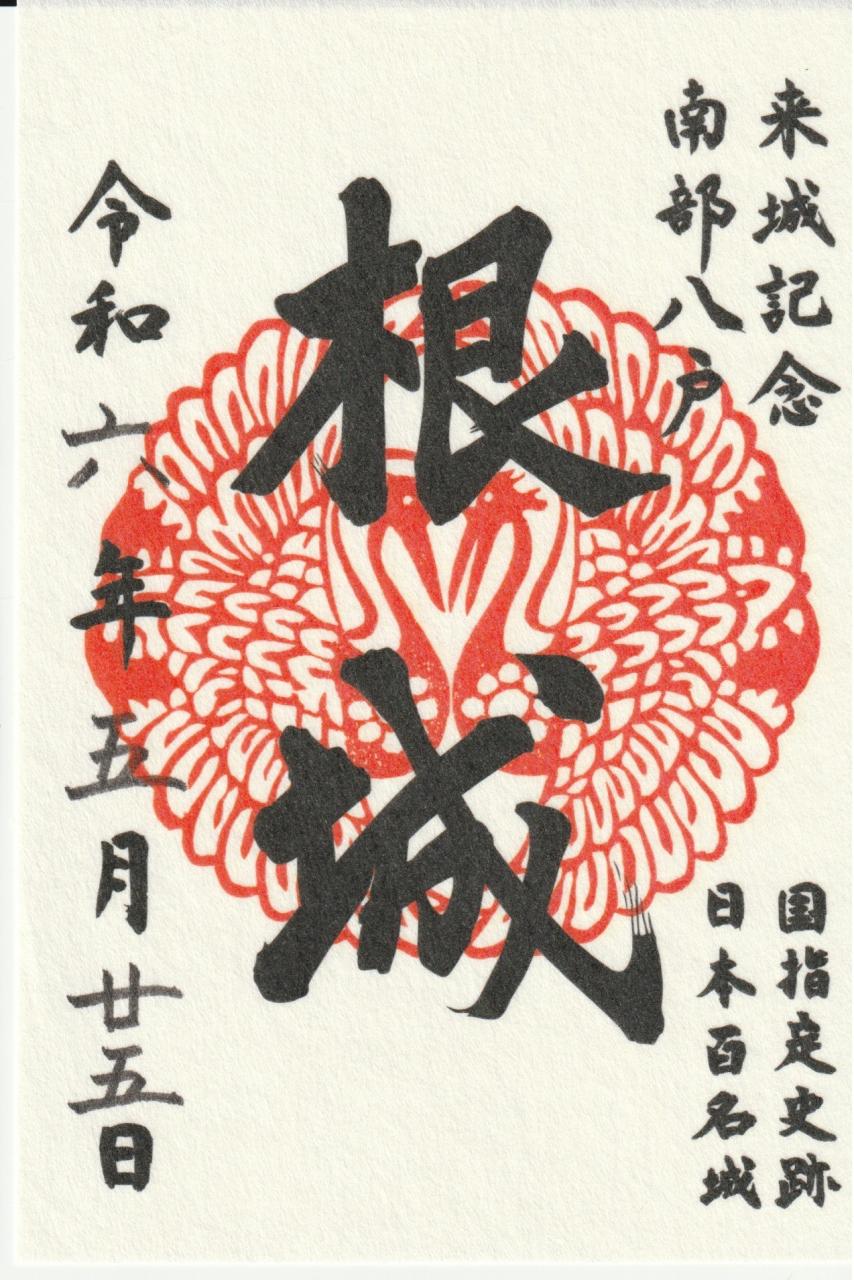 来城記念
南部八戸
国指定史跡
日本百名城
根城
令和六年五月廿五日